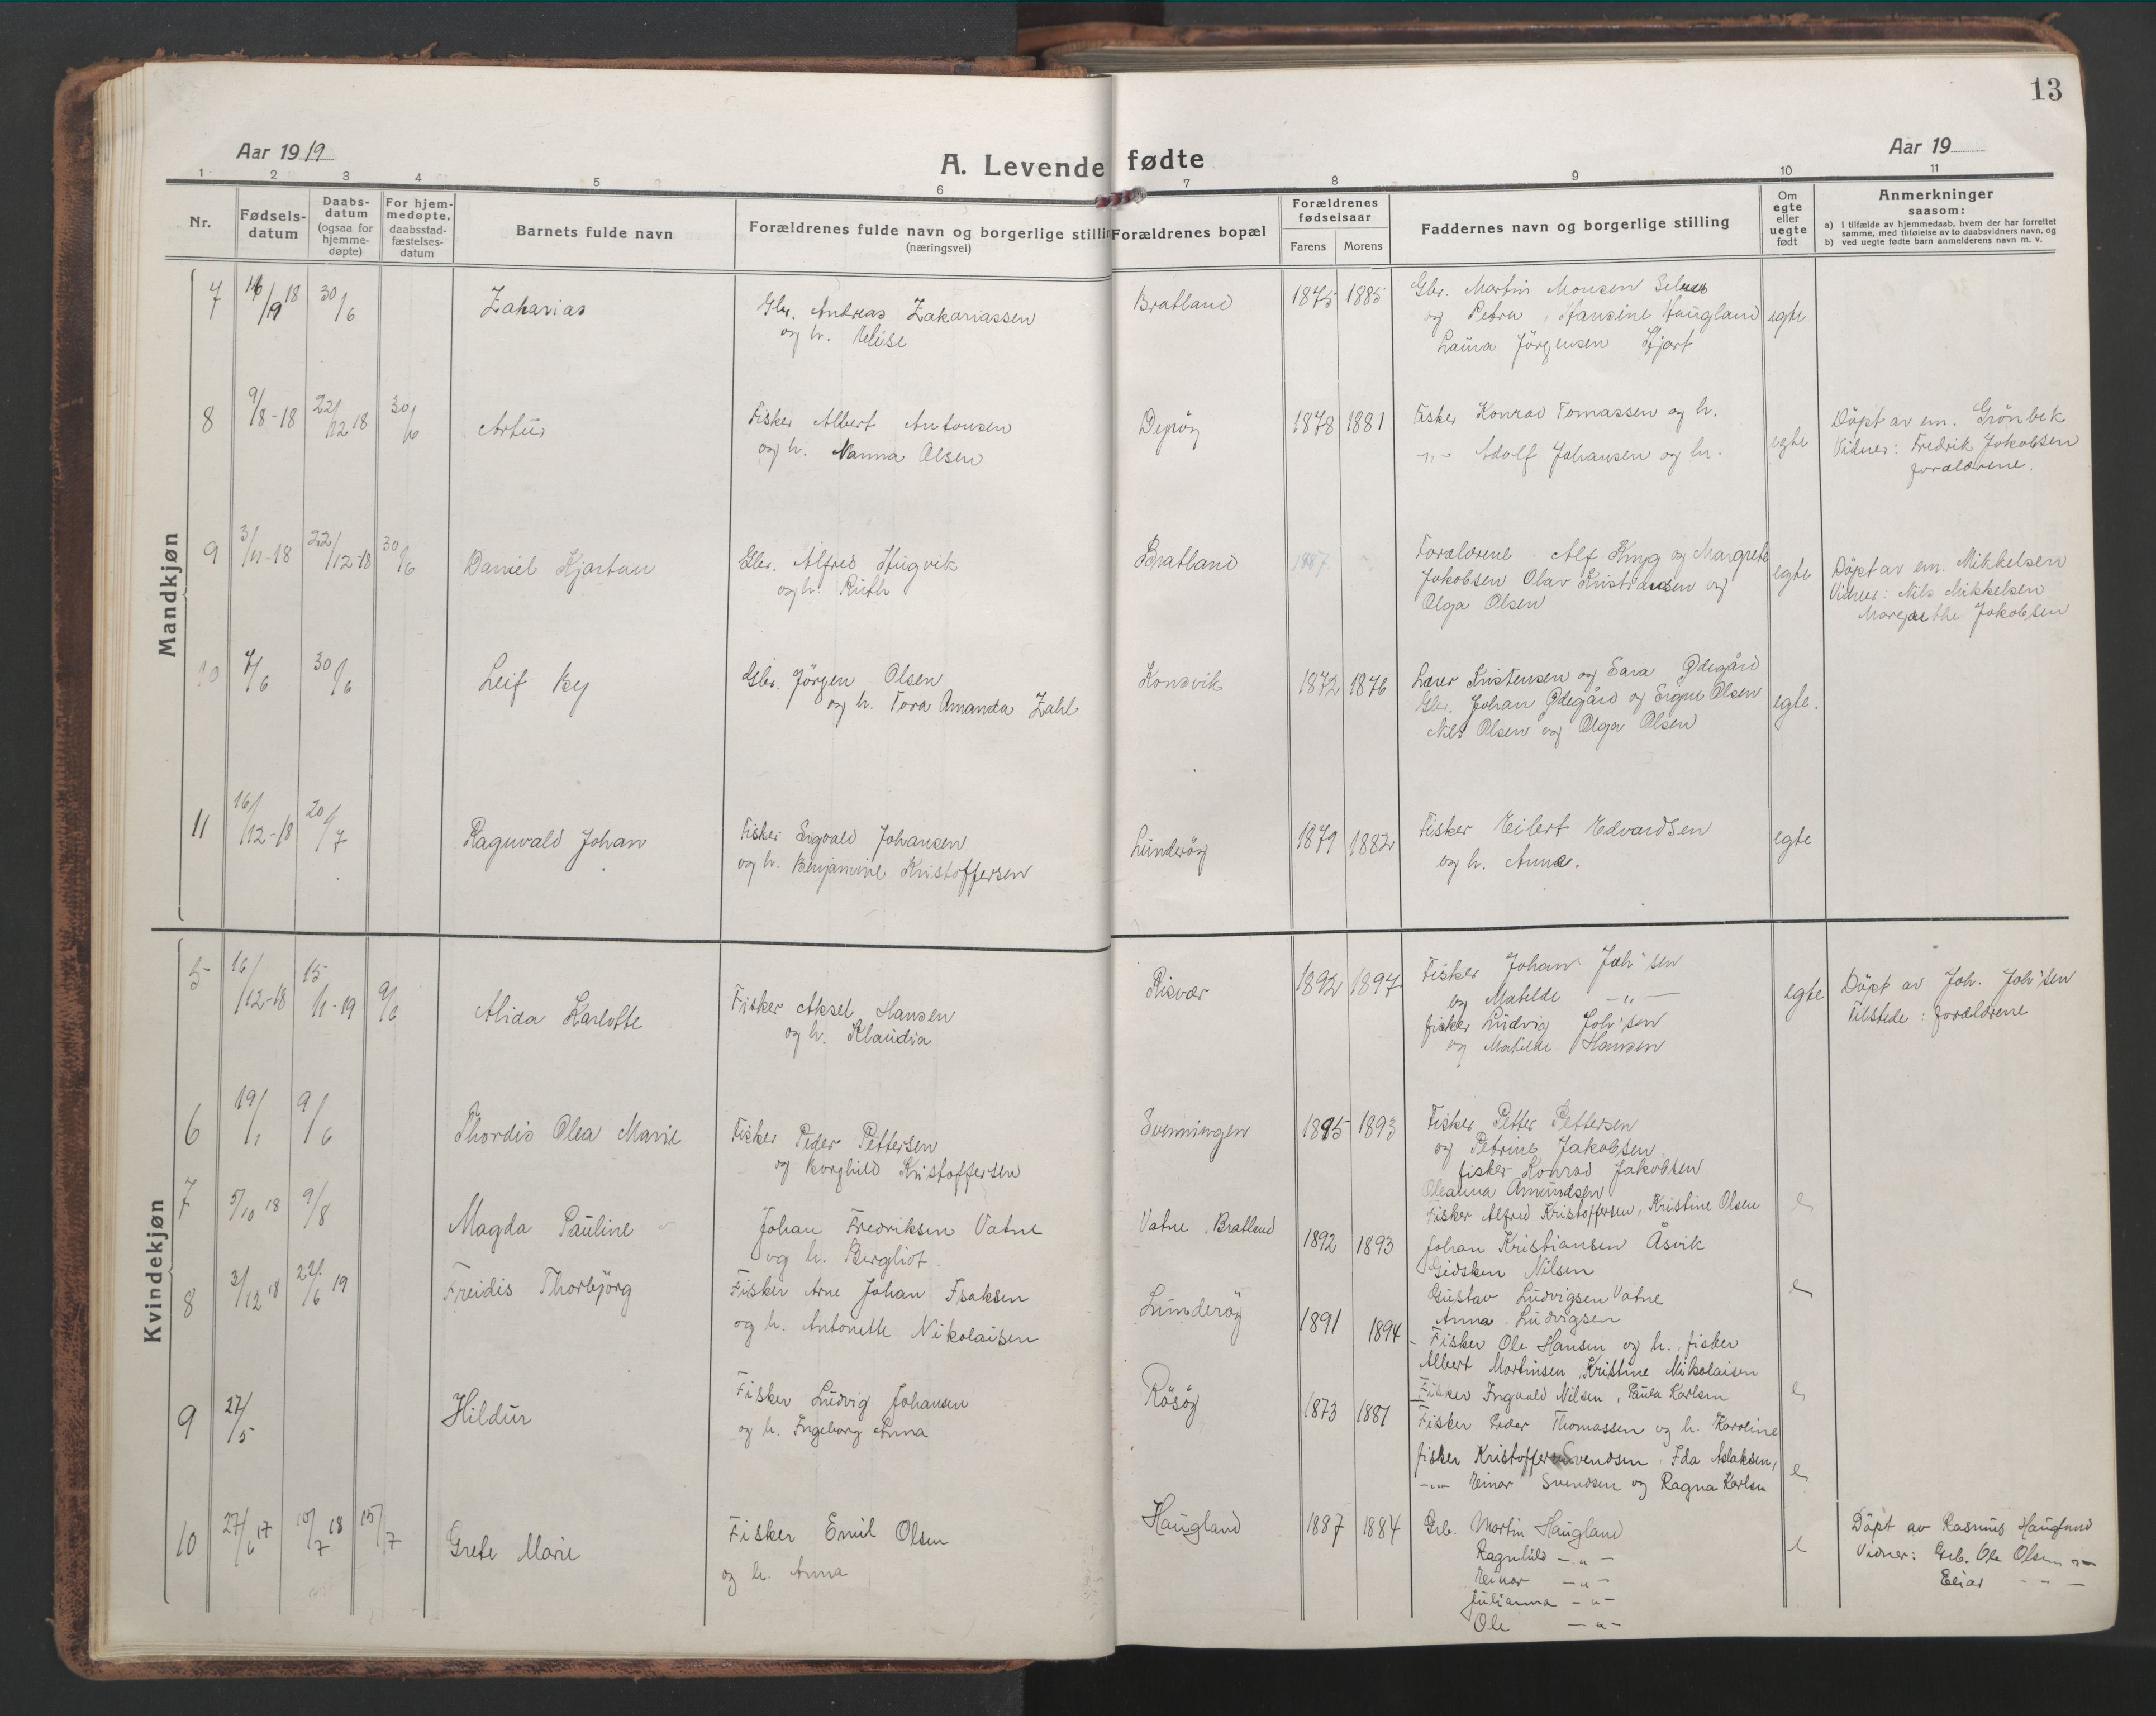 13
Aar 1919
A. Levende fødte
Aar 19
1 2 3 4 5 6 7 8 9 10 11
Nr.
Fødsels-
datum
Daabs-
datum
(ogsaa for
hjemme-
døpte)
For hjem-
medøpte,
daabsstad-
fæstelses-
datum
Barnets fulde navn
Forældrenes fulde navn og borgerlige stillin
(næringsvei)
Forældrenes bopæl
Forældrenes
fødselsaar
Farens Morens
Faddernes navn og borgerlige stilling
Om
egte
eller
uegte
født
Anmerkninger
saasom:
a) i tilfælde av hjemmedaab, hvem der har forrettet
samme, med tilføielse av to daabsvidners navn, og
b) ved uegte fødte barn anmelderens navn m. v.
Mandkjøn
7
/9 18
30/6
Zakarias
Gbr. Andreas Zakariassen
og h. Elise
Bratland
1875 1885
Gbr. Martin Monsen
og Petra, Hansine Haugland
Laura Jörgensen Hjart
egte
8
9/8-18
22/12 18
30/6
Artur
Fisker Albert Antonsen
og h. Nanna Olsen
1878 1881
Fisker Konrad Tomassen og h.
-"- Adolf Johansen og h.
egte
Döpt av em. Grönbek
Vidner: Fredrik Jakobsen
forældrene.
9
3/11-18
22/12-18
30/6
Daniel Kjartan
Gbr. Alfred Hugvik
og h. Ruth
Bratland
1887
Forældrene Alf King og Margrete
Jakobsen Olav Kristiansen og
Olga Olsen
egte
Döpt av em. Mikkelsen
Vidner: Nils Mikkelsen
Margrethe Jakobsen
10
7/6
30/6
Leif
Gbr. Jörgen Olsen
og h. Tora Amanda Zahl
Konsvik
1872 1876
Lærer Kristensen og Sara Ødegård
Gbr. Johan Ødegård og Signe Olsen
Nils Olsen og Olga Olsen
egte.
11
16/12-18
20/7
Ragnvald Johan
Fisker Sigvald Johansen
og h. Benjamine Kristoffersen
Lunderöy
1879 1882
Fisker Eilert Edvardsen
og h. Anna.
egte
Kvindekjøn
5
16/12-18
15/1-19
9/6
Alida Karlotte
Fisker Aksel Hansen
og h. Klaudia
Risvær
1892 1897
Fisker Johan Joh'sen
og Matilde -"-
fisker Ludvig Joh'sen
og Matilde Hansen
egte
Döpt av Joh. Joh'sen
Tilstede: forældrene
6
19/1
9/6
Thordis Olea Marie
Fisker Peder Pettersen
og Borghild Kristoffersen
Svenningen
1895 1893
Fisker Petter Pettersen
og Petrine Jakobsen
fisker Konrad Jakobsen
Oleanna Amundsen
Fisker Alfred Kristoffersen, Kristine Olsen
e
7
5/10 18
9/8
Magda Pauline
Johan Fredriksen Vatne
og h. Bergliot.
Vatne, Bratland
1892 1893
Johan Kristiansen Åsvik
Gidsken Nilsen
Gustav Ludvigsen Vatne
Anna Ludvigsen
e
8
3/12 18
22/6 19
Freidis Thorbjörg
Fisker Arne Johan Isaksen
og h. Antonette Nikolaisen
Lunderöy
1891 1894
Fisker Ole Hansen og h. fisker
Albert Martinsen Kristine Nikolaisen
Fisker Ingvald Nilsen, Paula Karlsen
e
9
27/5
Hildur
Fisker Ludvig Johansen
og h. Ingeborg Anna
Rösöy
1873 1881
Fisker Peder Thomassen og h. Karoline
fisker Kristoffer Svendsen, Ida Aslaksen,
-"- Einar Svendsen og Ragna Karlsen
e
10
27/6 17
10/7 18
15/7
Grete Marie
Fisker Emil Olsen
og h. Anna
Haugland
1887 1884
Grb. Martin Haugland
Ragnhild -"-
Einar -"-
Julianna -"-
Ole -"-
e
Döpt av Rasmus Haugland
Vidner: Grb. Ole Olsen
Elias